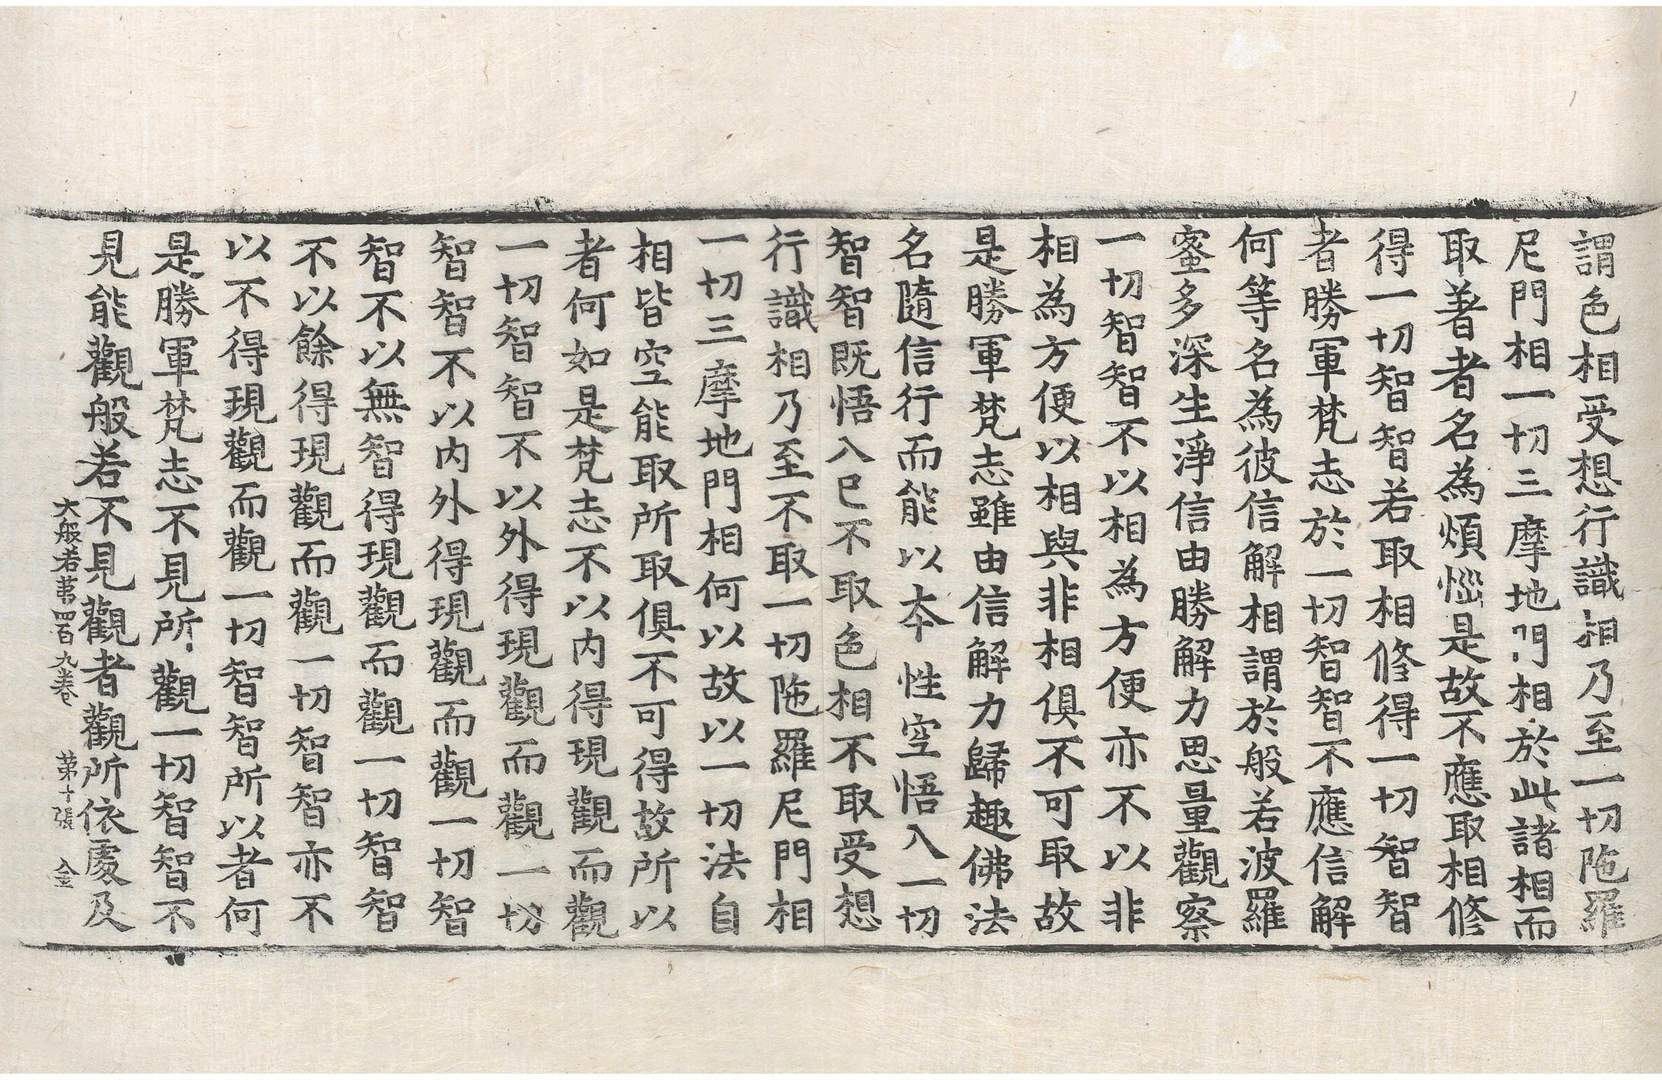 謂色相受想行識相乃至一切陁羅
尼門相一切三摩地門相於此諸相而
取著者名為煩惱是故不應取相修
得一切智智若取相修得一切智智
者勝軍梵志於一切智智不應信解
何等名為彼信解相謂於般若波羅
蜜多深生淨信由勝解力思量觀察
一切智智不以相為方便亦不以非
相為方便以相與非相俱不可取故
是勝軍梵志雖由信解力歸趣佛法
名隨信行而能以本性空悟入一切
智智既悟入已不取色相不取受想
行識相乃至不取一切陁羅尼門相
一切三摩地門相何以故以一切法自
相皆空能取所取俱不可得故所以
者何如是梵志不以内得現觀而觀
一切智智不以外得現觀而觀一切
智智不以内外得現觀而觀一切智
智不以無智得現觀而觀一切智智
不以餘得現觀而觀一切智智亦不
以不得現觀而觀一切智智所以者何
是勝軍梵志不見所觀一切智智不
見能觀般若不見觀者觀所依處及
大般若第四百九卷 第十張 金